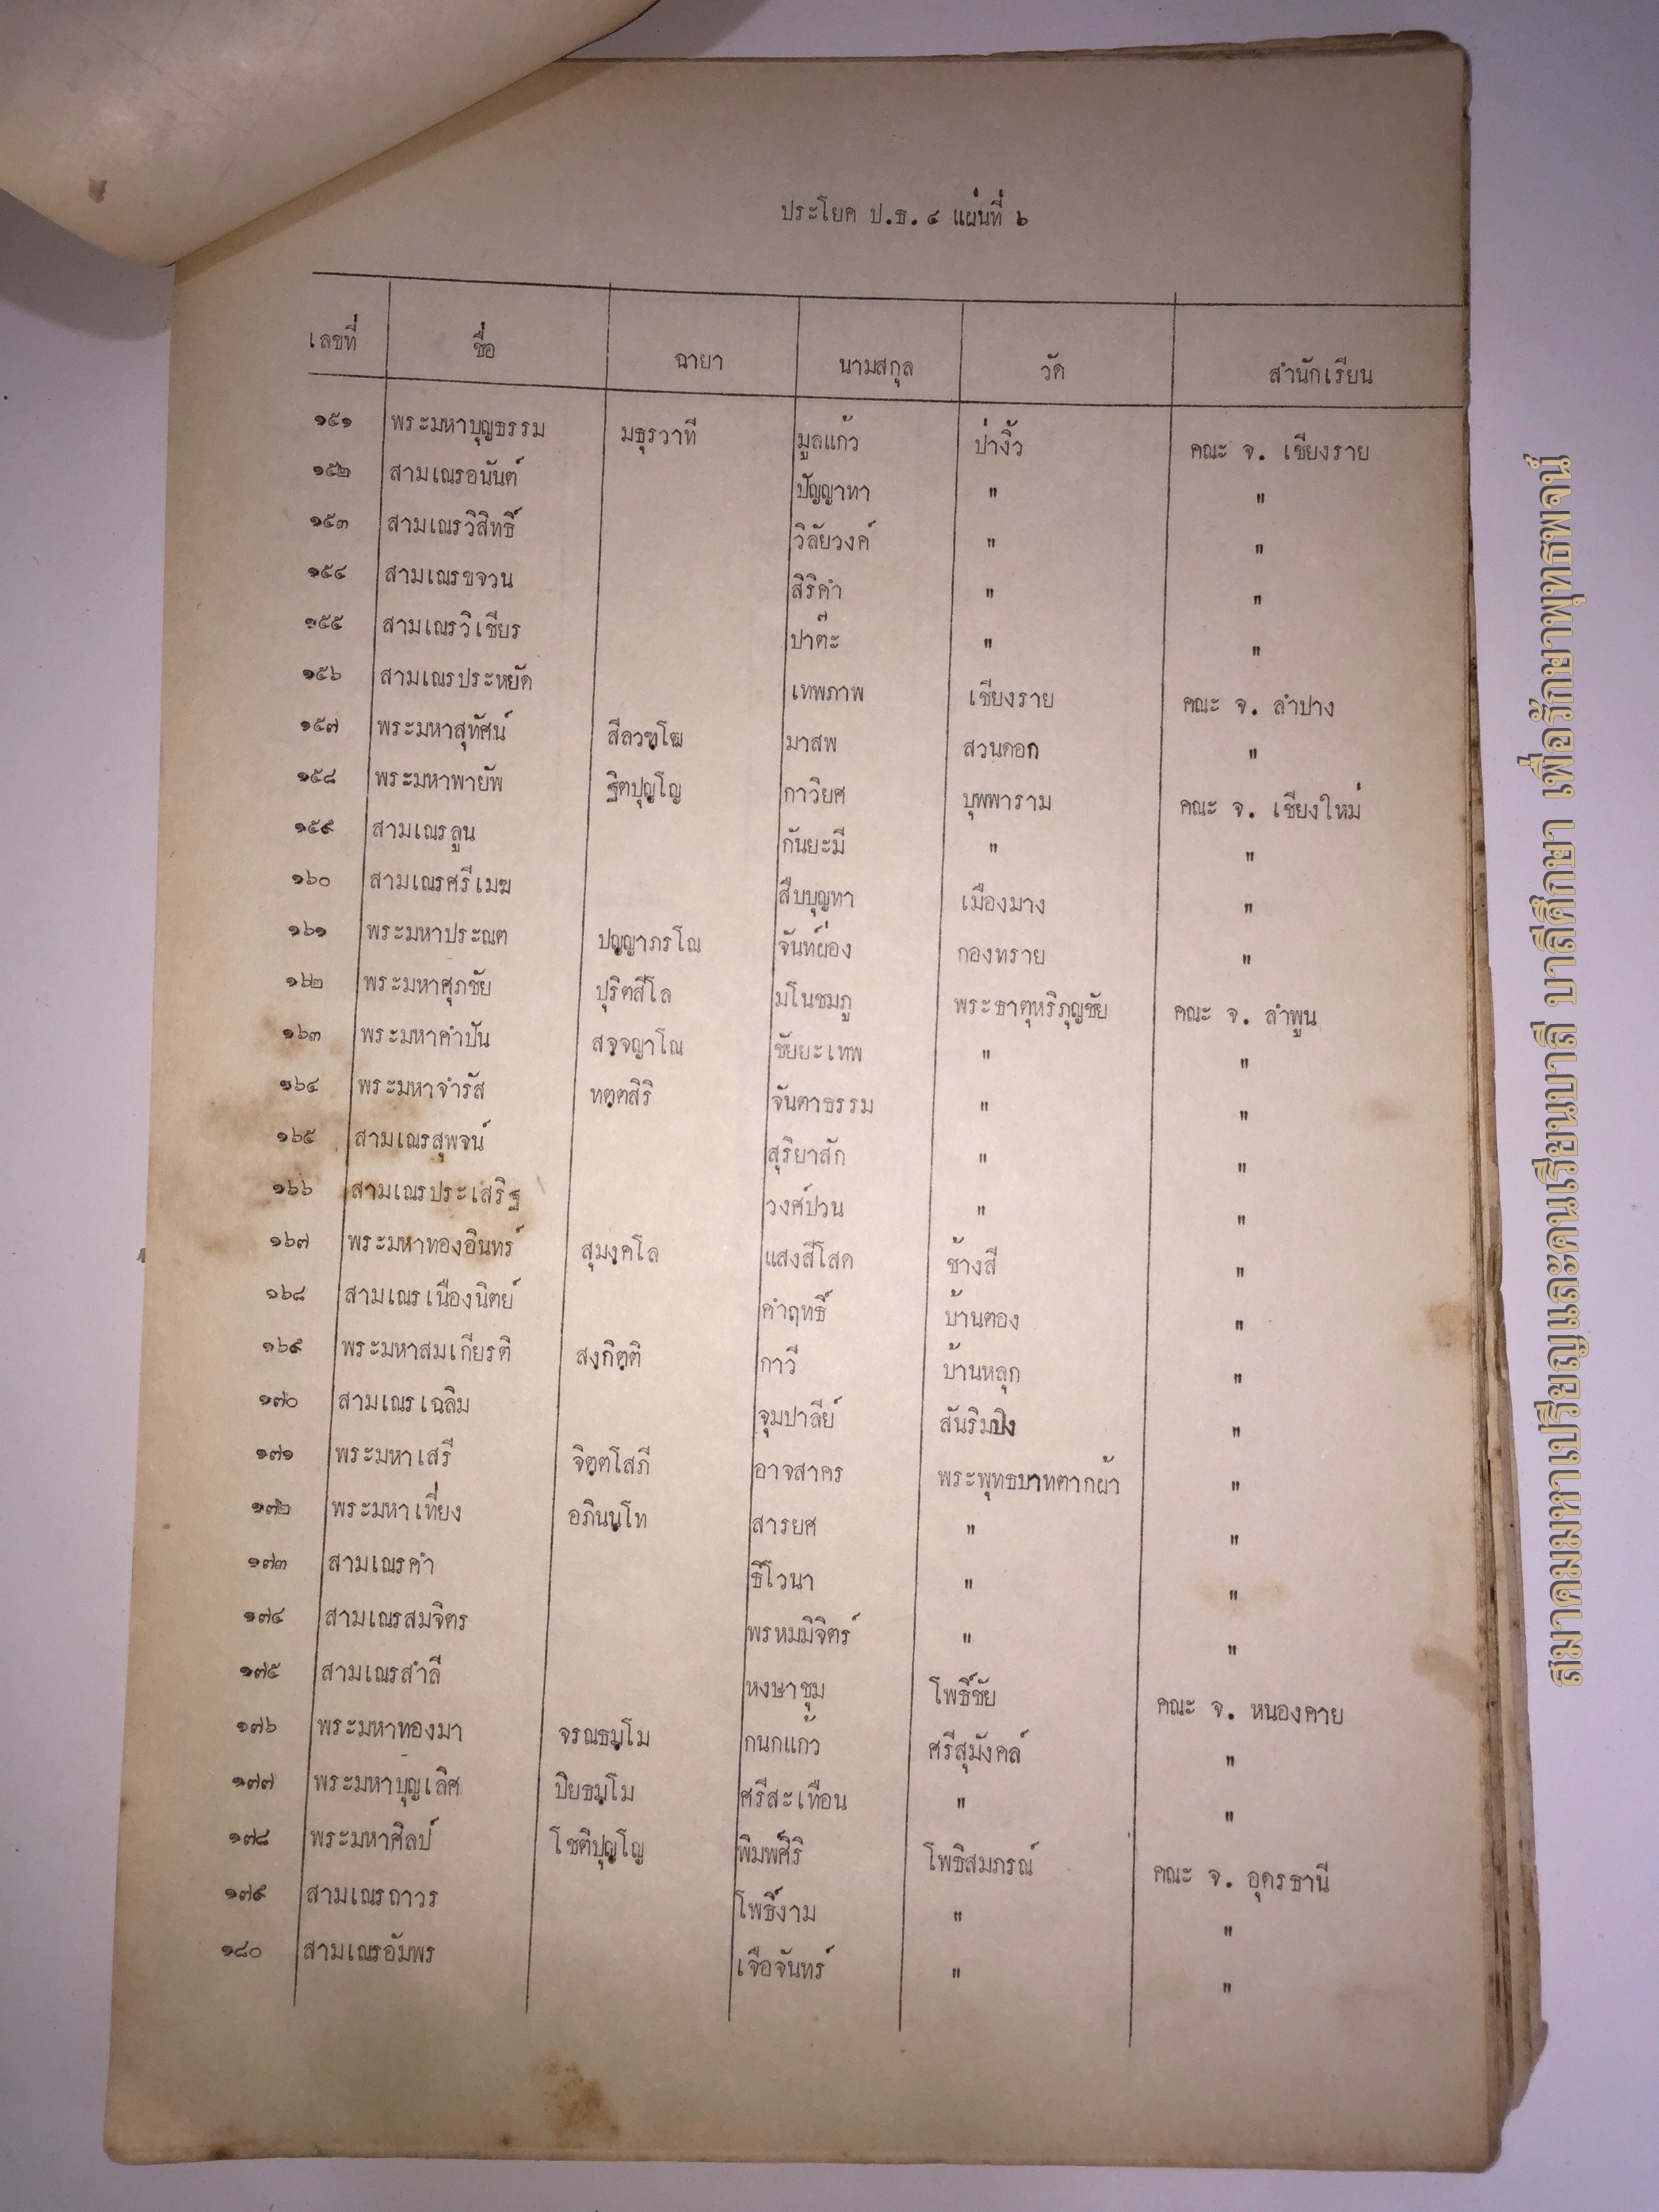 ประโยค ป.ธ. ๔ แผ่นที่ ๖
เลขที่ ชื่อ ฉายา นามสกุล วัด สำนักเรียน
๑๕๑ พระมหาบุญธรรม มธุรวาที มูลแก้ว ป่างิ้ว คณะ จ. เชียงราย
๑๕๒ สามเณรอนันต์ ปัญญาทา " "
๑๕๓ สามเณรวิสิทธิ์ วิลัยวงค์ " "
๑๕๔ สามเณรขจวน สิริคำ " "
๑๕๕ สามเณรวิเชียร ปาต๊ะ " "
๑๕๖ สามเณรประหยัด เทพภาพ เชียงราย คณะ จ. ลำปาง
๑๕๗ พระมหาสุทัศน์ สีลวฑฺโฒ มาสพ สวนดอก "
๑๕๘ พระมหาพายัพ ฐิตปุญฺโญ กาวิยศ บุพพาราม คณะ จ. เชียงใหม่
๑๕๙ สามเณรลูน กันยะมี " "
๑๖๐ สามเณรศรีเมฆ สืบบุญทา เมืองมาง "
๑๖๑ พระมหาประณต ปญฺญาภรโณ จันท์ผ่อง กองทราย "
๑๖๒ พระมหาศุภชัย ปุริตสีโล มโนชมภู พระธาตุหริภุญชัย คณะ จ. ลำพูน
๑๖๓ พระมหาคำปัน สจฺจญาโณ ชัยยะเทพ " "
๑๖๔ พระมหาจำรัส ทตฺตสิริ จันตาธรรม " "
๑๖๕ สามเณรสุพจน์ สุริยาสัก " "
๑๖๖ สามเณรประเสริฐ วงศ์ปวน " "
๑๖๗ พระมหาทองอินทร์ สุมงฺคโล แสงสีโสด ช้างสี "
๑๖๘ สามเณรเนืองนิตย์ คำฤทธิ์ บ้านตอง "
๑๖๙ พระมหาสมเกียรติ สงฺกิตฺติ กาวี บ้านหลุก "
๑๗๐ สามเณรเฉลิม จุมปาลีย์ สันริมปิง "
๑๗๑ พระมหาเสรี จิตฺตโสภี อาจสาคร พระพุทธบาทตากผ้า "
๑๗๒ พระมหาเที่ยง อภินนฺโท สารยศ " "
๑๗๓ สามเณรคำ ธิโวนา " "
๑๗๔ สามเณรสมจิตร พรหมมิจิตร์ " "
๑๗๕ สามเณรสำลี หงษาชุม โพธิ์ชัย คณะ จ. หนองคาย
๑๗๖ พระมหาทองมา จรณธมฺโม กนกแก้ว ศรีสุมังคล์ "
๑๗๗ พระมหาบุญเลิศ ปิยธมฺโม ศรีสะเทือน " "
๑๗๘ พระมหาศิลป์ โชติปุญฺโญ พิมพ์ศิริ โพธิสมภรณ์ คณะ จ. อุดรธานี
๑๗๙ สามเณรถาวร โพธิ์งาม " "
๑๘๐ สามเณรอัมพร เจือจันทร์ " "
สมาคมมหาเปรียญและคนเรียนบาลี บาลีศึกษา เพื่อรักษาพุทธพจน์